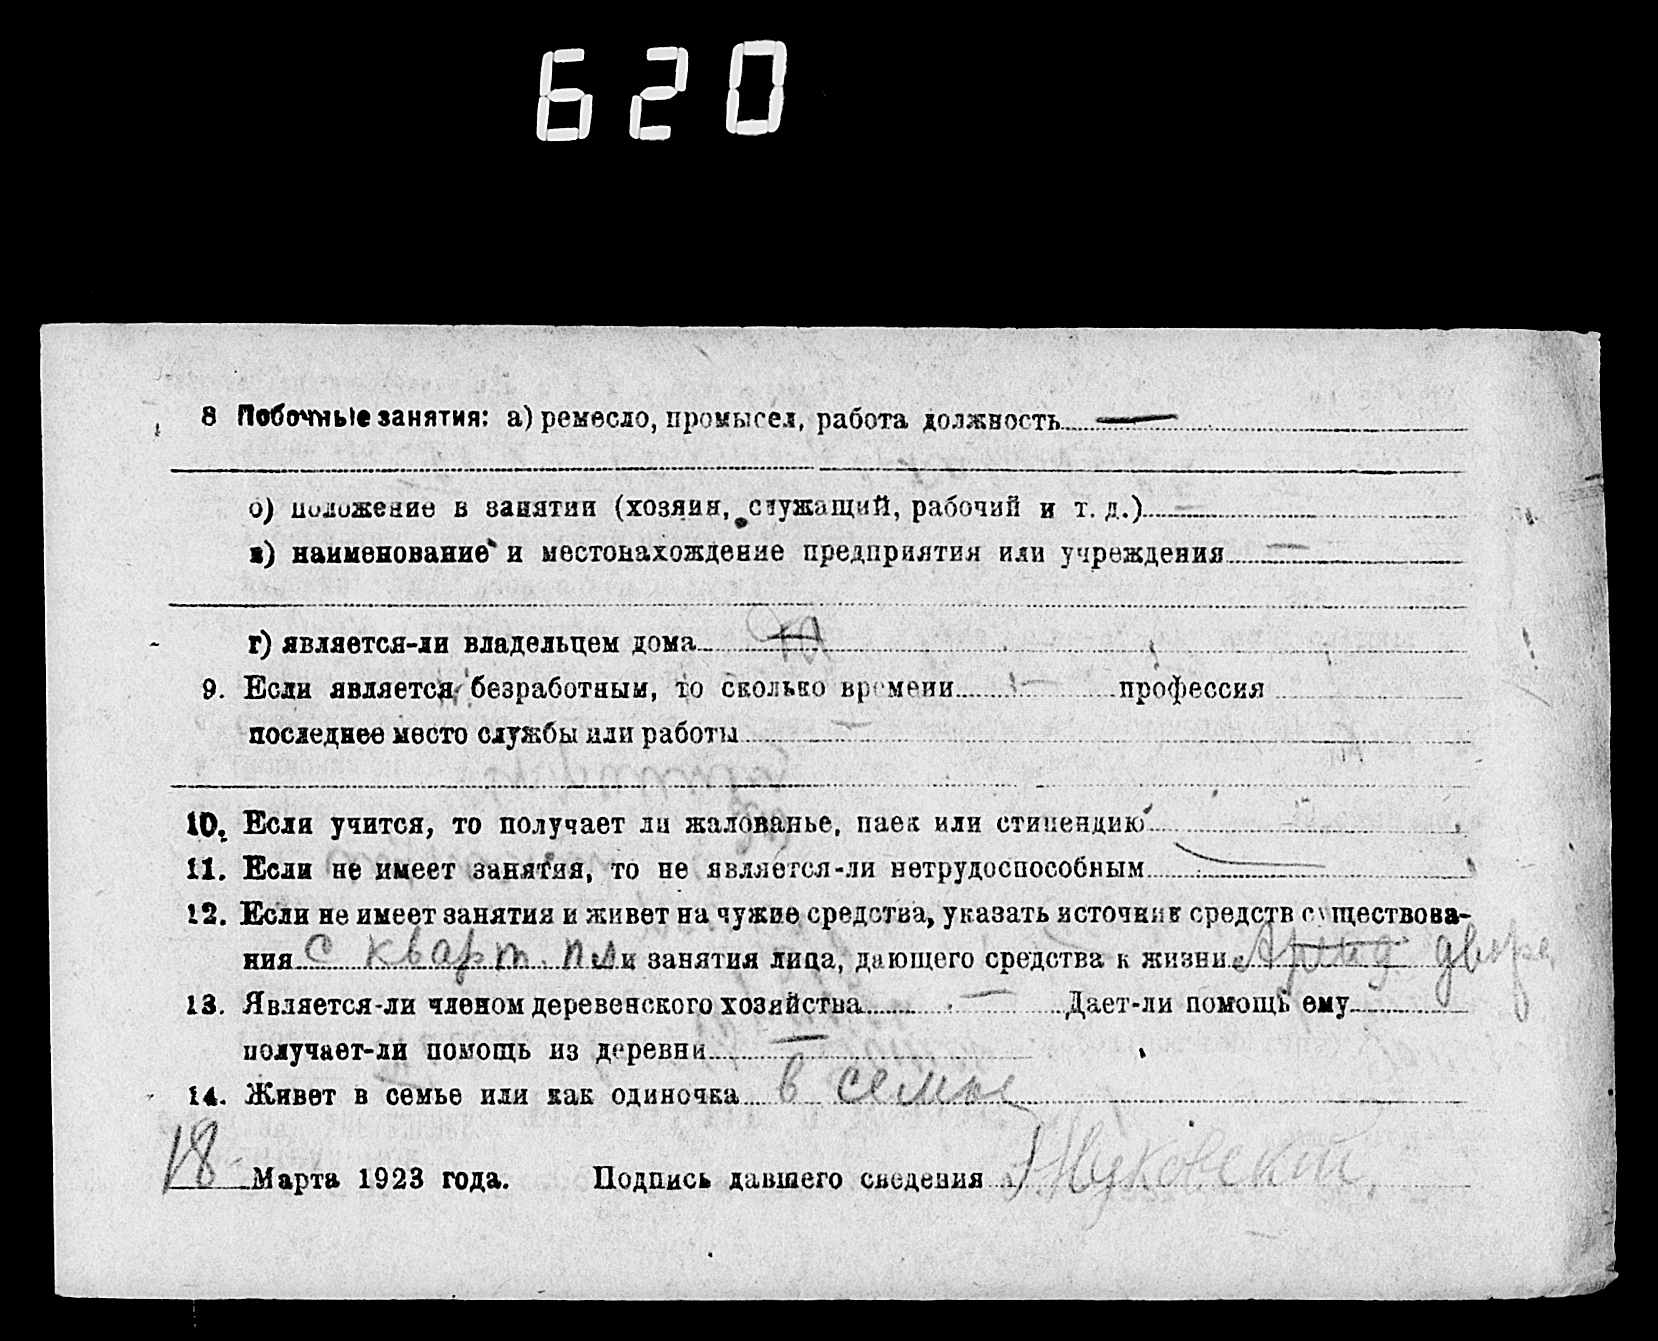 620
8 Побочные занятия: а) ремесло, промысел, работа должность —
б) положение в занятии (хозяин, служащий, рабочий и т. д.) —
в) наименование и местонахождение предприятия или учреждения —
г) является-ли владельцем дома
9. Если является безработным, то сколько времени — профессия
последнее место службы или работы —
10. Если учится, то получает ли жалованье, паек или стипендию
11. Если не имеет занятия, то не является-ли нетрудоспособным
12. Если не имеет занятия и живет на чужие средства, указать источник средств существова-
ния с кварт. пл. и занятия лица, дающего средства к жизни
13. Является-ли членом деревенского хозяйства — Дает-ли помощь ему
получает-ли помощь из деревни —
14. Живет в семье или как одиночка в семье
18 Марта 1923 года. Подпись давшего сведения